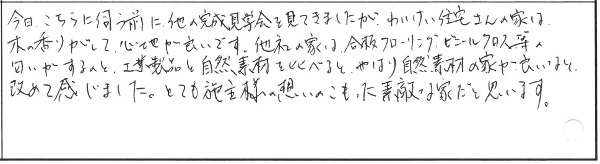 今日、こちらに伺う前に、他の完成見学会を見てきましたが、わいけい住宅さんの家は、
木の香りがして、心地が良いです。他社の家は、合板フローリング・ビニールクロス等の
匂いがするんで、工業製品と自然素材を比べると、やはり自然素材の家が良いなと、
改めて感じました。とても施主様の想いのこもった素敵な家だと思います。